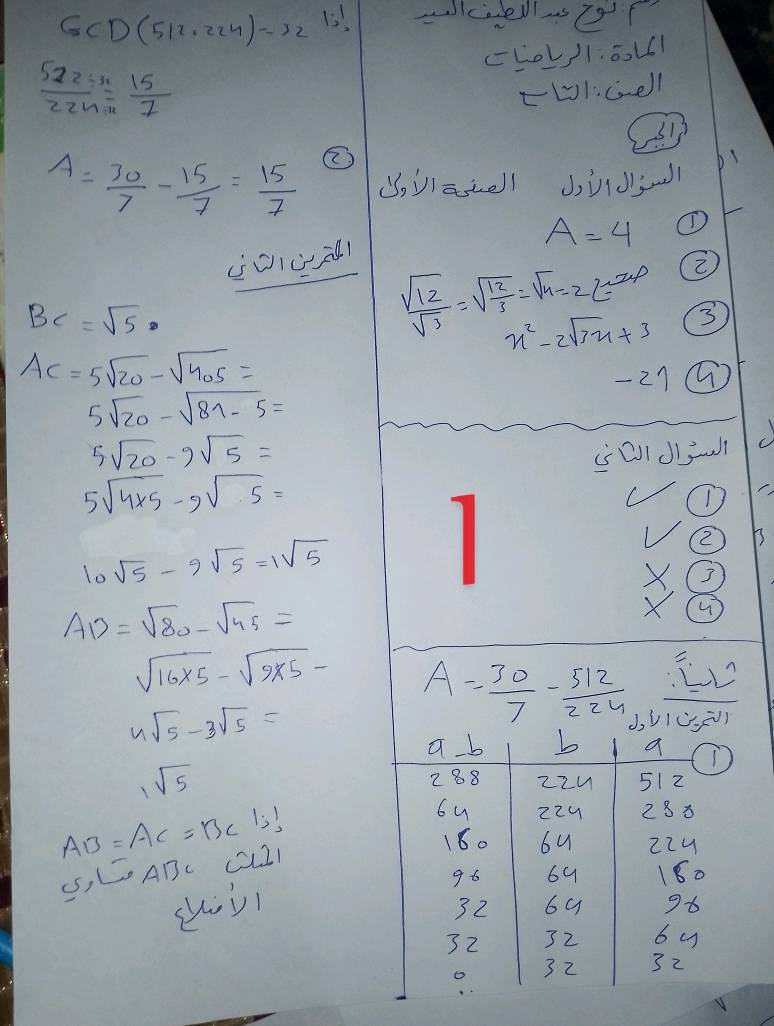 اسم: نوح عبد اللطيف السيد
المادة: الرياضيات
الصف: التاسع
الجبر
السؤال الأول الصفحة الأولى
① A = 4
② √12/√3 = √(12/3) = √4 = 2 صحيح
③ x² - 2√3x + 3
④ -21
السؤال الثاني
① ✓
② ✓
③ ✗
④ ✗
ثانياً: A = 30/7 - 512/224
التمرين الأول
①
a | b | a-b
512 | 224 | 288
288 | 224 | 64
224 | 64 | 160
160 | 64 | 96
96 | 64 | 32
64 | 32 | 32
32 | 32 | 0
1
إذا GCD(512,224) = 32
512÷32/224÷32 = 15/7
② A = 30/7 - 15/7 = 15/7
التمرين الثاني
BC = √5.
AC = 5√20 - √405 =
5√20 - √81-5 =
5√20 - 9√5 =
5√4×5 - 9√5 =
10√5 - 9√5 = 1√5
AB = √80 - √45 =
√16×5 - √9×5 -
4√5 - 3√5 =
1√5
إذا AB = AC = BC
المثلث ABC متساوي
الأضلاع